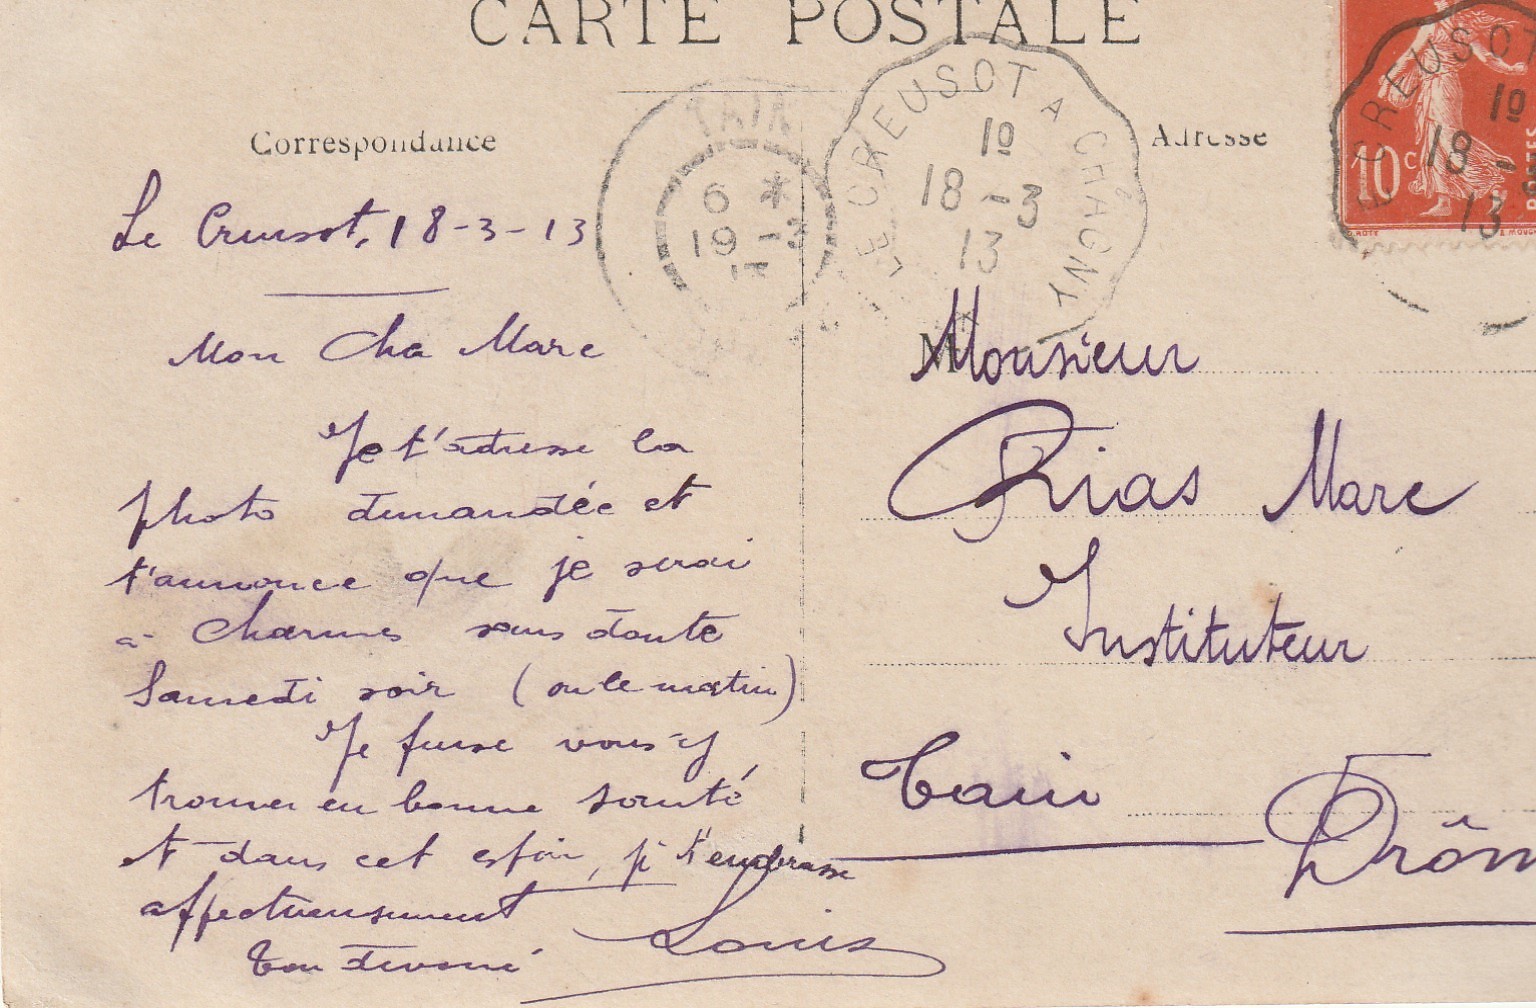 CARTE POSTALE
Correspondance
Adresse
TAIN
6 *
19 - 3
13
LE CREUSOT A CHAGNY
10
18 - 3
13
LE CREUSOT
10
18 -
13
10c
POSTES
Le Creusot, 18-3-13
Mon Cher Marc
Je t'adresse la
photo demandée et
t'annonce que je serai
à Charmes sans doute
Samedi soir (ou le matin)
Je puisse vous y
trouver en bonne santé
et dans cet espoir, je t'embrasse
affectueusement
Ton devoué Louis
M
Monsieur
Rias Marc
Instituteur
Tain
Drôm